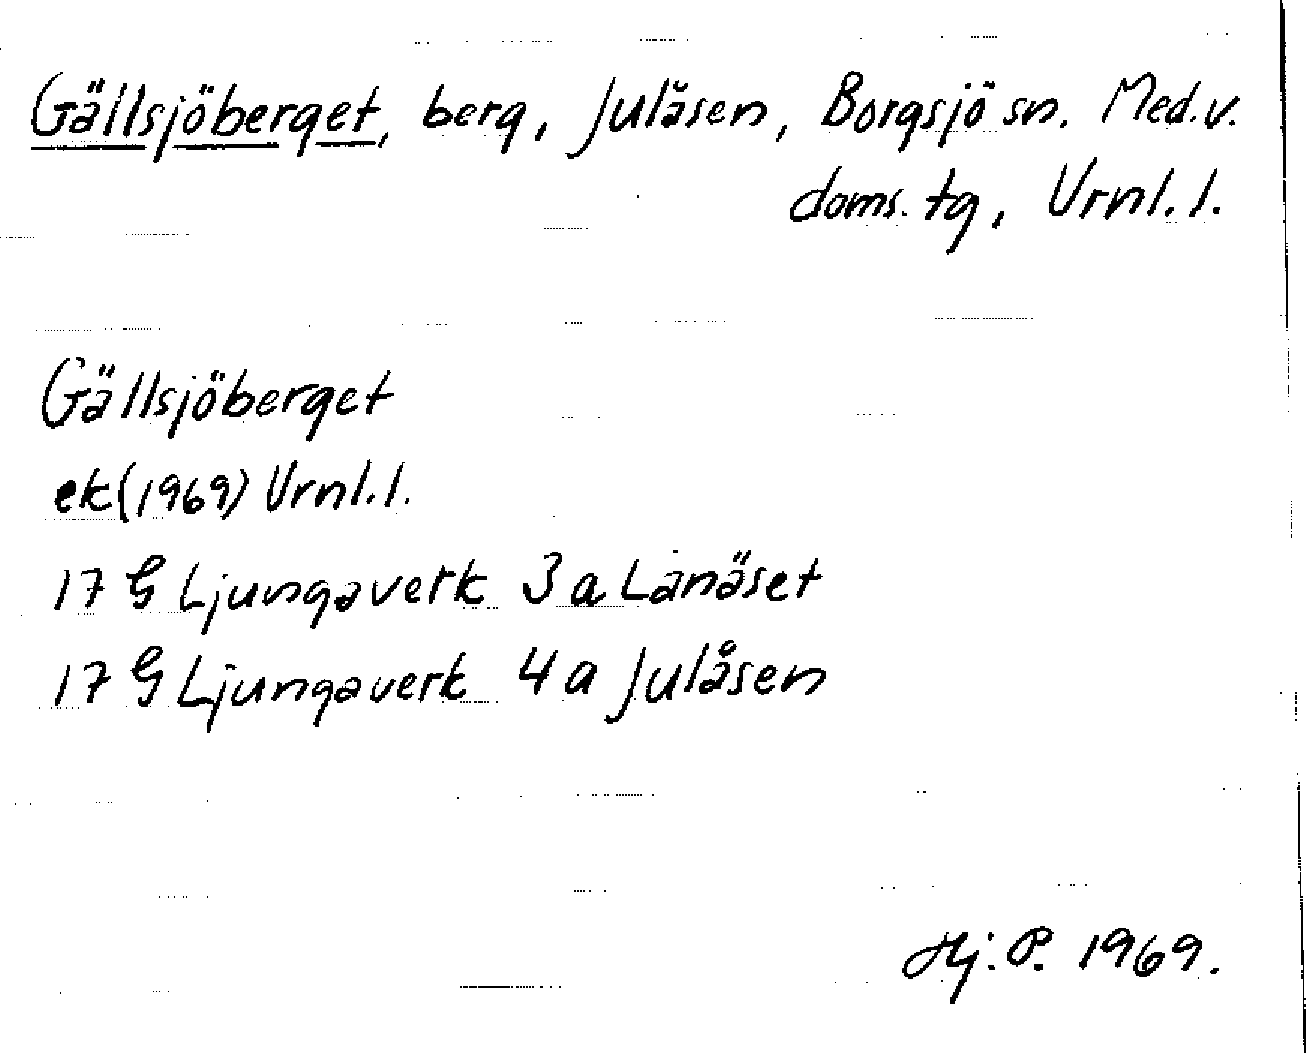 Gällsjöberget, berg, Julåsen, Borgsjö sn. Med.v.
doms. tg, Vrnl. l.
Gällsjöberget
ek (1969) Vrnl. l.
17 G Ljungaverk 3 a Lanäset
17 G Ljungaverk 4 a Julåsen
Hj. P. 1969.